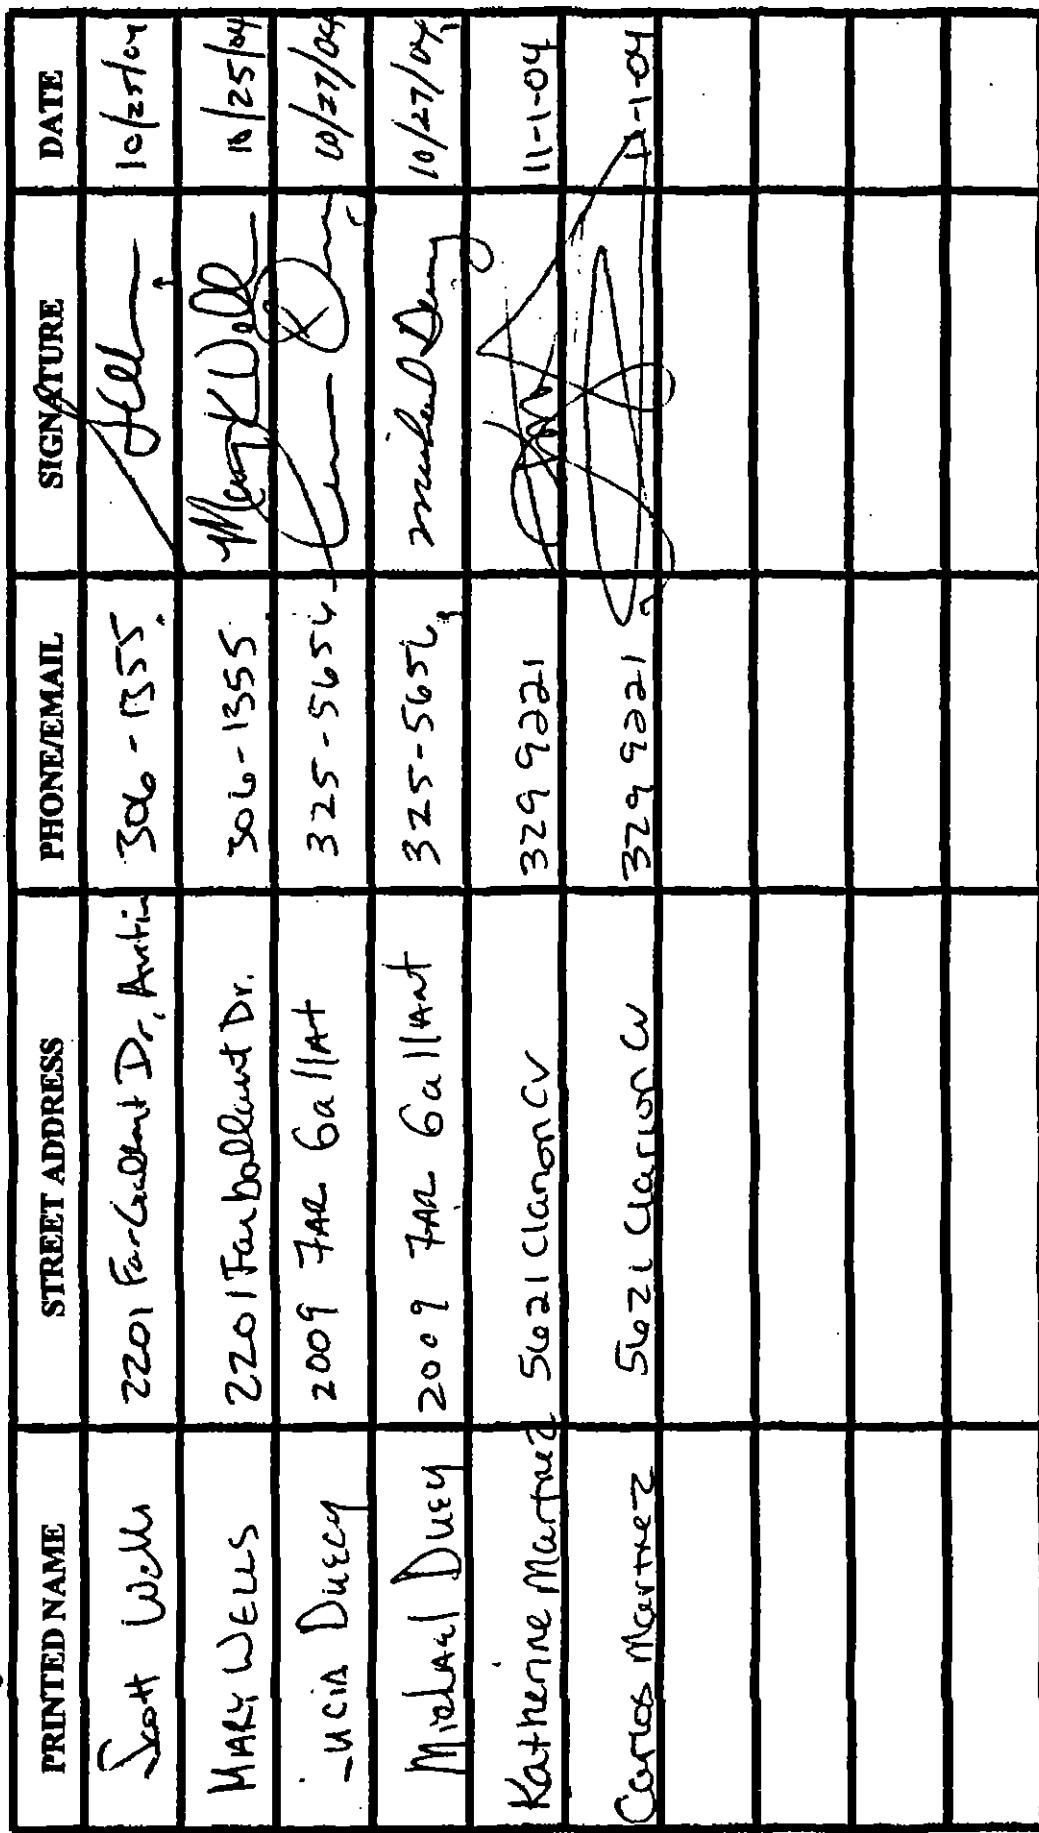 PRINTED NAME STREET ADDRESS PHONE/EMAIL SIGNATURE DATE
Scott Wells 2201 Far Gallant Dr, Austin 306-1355 10/25/04
MARY WELLS 2201 Far Gallant Dr. 306-1355 Mary K Wells 10/25/04
Lucia Duecy 2009 FAR GallAt 325-5656 10/27/04
MichAel Duey 2009 FAR GallAnt 325-5656 10/27/04
Katherine Martinez 5621 Clarion CV 329 9221 11-1-04
Carlos Martinez 5621 Clarion CV 329 9221 11-1-04